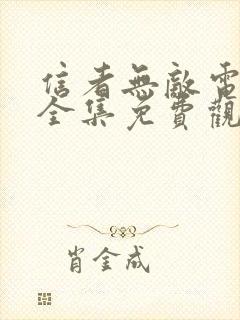 信者無敵電
全集免費觀
肖金成